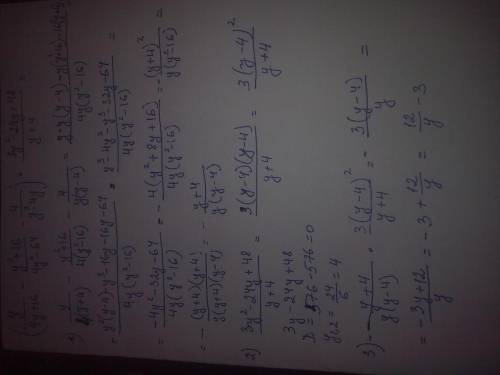 (y/(4y+16) - (y²+16)/(4y²-64) - 4/(y²-4y)) · (3y²-24y+48)/(y+4) =
1) y/4(y+4) - (y²+16)/4(y²-16) - 4/y(y-4) = (y·y(y-4)-y(y²+16)-16(y+4))/4y(y²-16) =
= (y²(y-4)-y³-16y-16y-64)/4y(y²-16) = (y³-4y²-y³-32y-64)/4y(y²-16) =
= (-4y²-32y-64)/4y(y²-16) = - 4(y²+8y+16)/4y(y²-16) = - (y+4)²/y(y²-16) =
= - (y+4)(y+4)/y(y+4)(y-4) = - (y+4)/y(y-4)
2) (3y²-24y+48)/(y+4) = 3(y-4)(y-4)/(y+4) = 3(y-4)²/(y+4)
3y-24y+48
D=576-576=0
y1,2=24/6=4
3) - (y+4)/y(y-4) · 3(y-4)²/(y+4) = - 3(y-4)/y =
= (-3y+12)/y = -3+12/y = 12/y -3